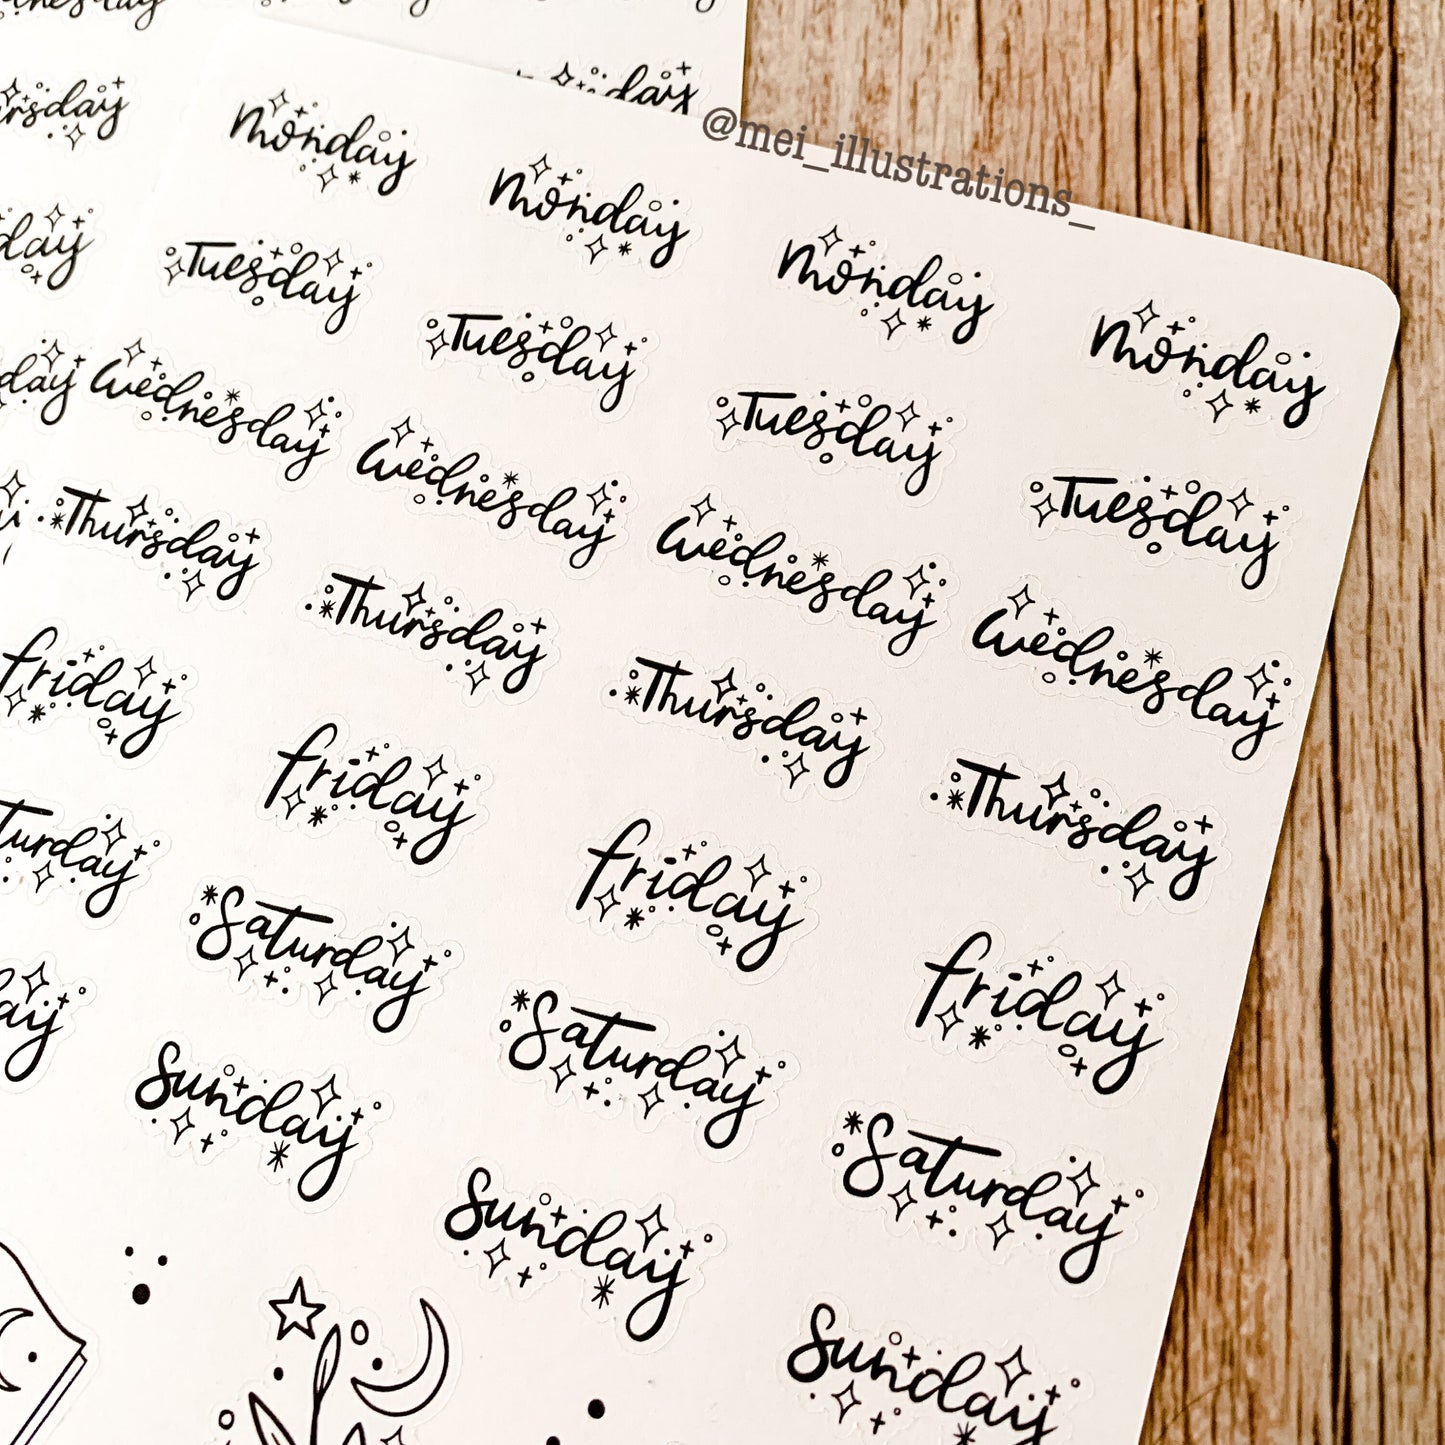 @mei_illustrations_
Monday Monday Monday Monday
Tuesday Tuesday Tuesday Tuesday
Wednesday Wednesday Wednesday Wednesday
Thursday Thursday Thursday Thursday
Friday Friday Friday Friday
Saturday Saturday Saturday
Sunday Sunday Sunday